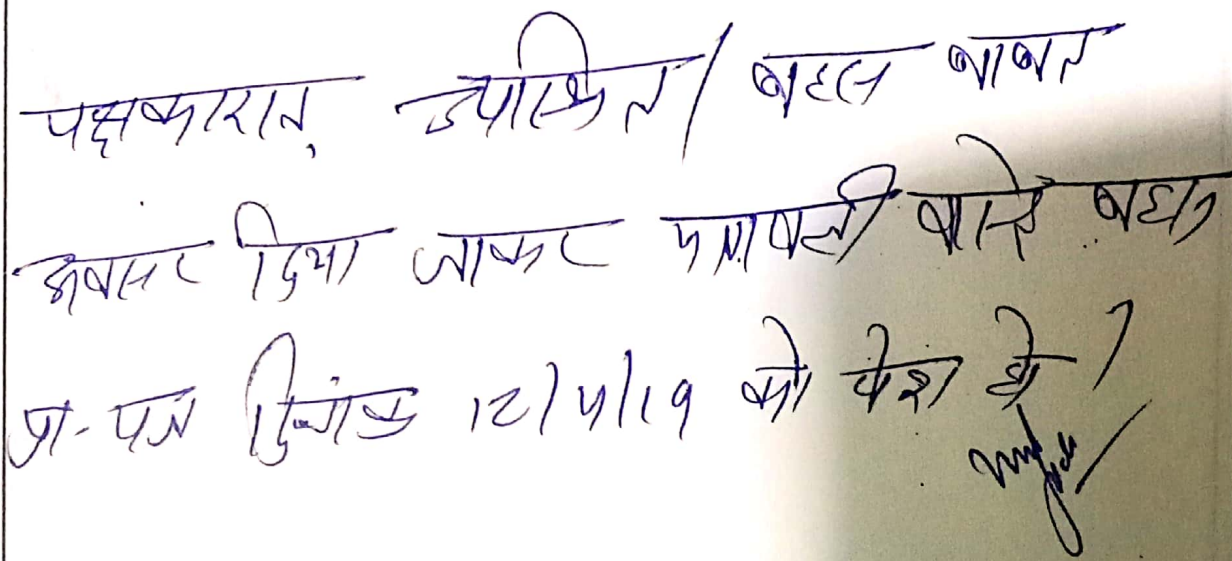 पक्षकारान् उपस्थित। बहस बाबत
अवसर दिया जाकर पत्रावली वास्ते बहस
प्रा-पत्र दिनांक 12/4/19 को पेश हो।